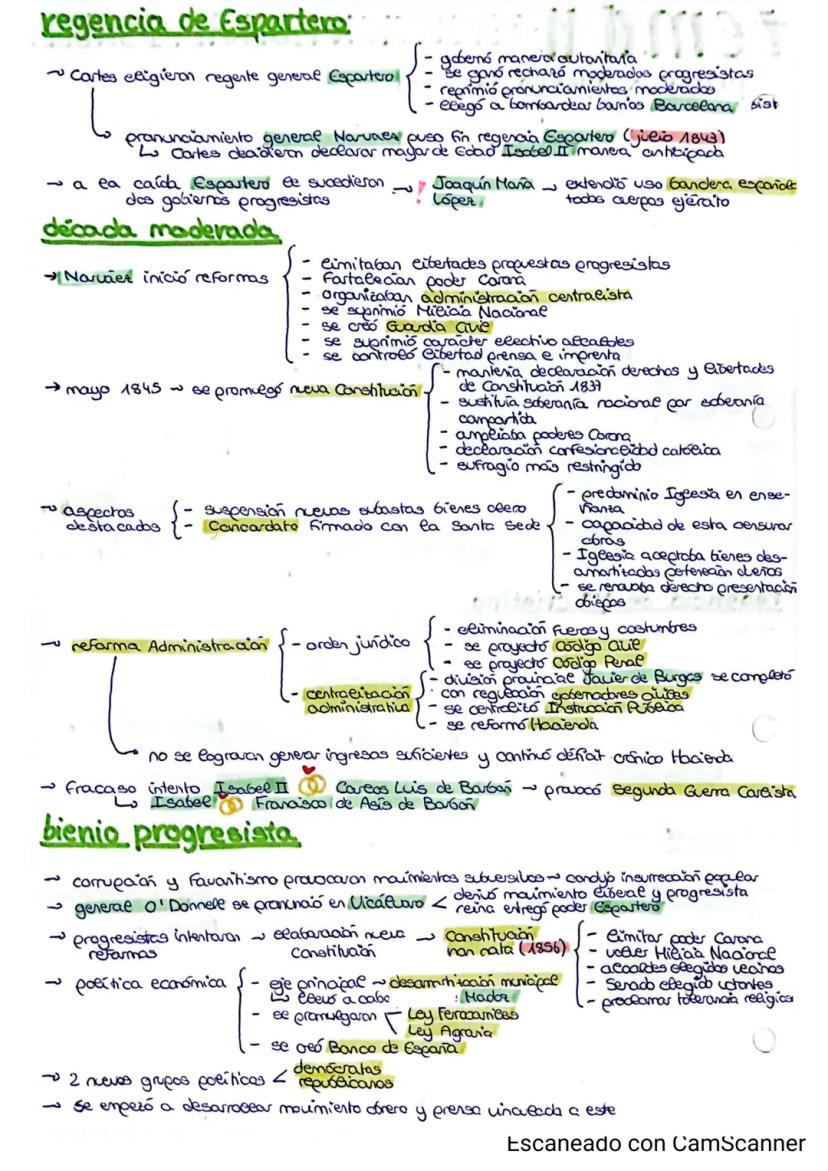 regencia de Espartero:
~ Cortes eligieron regente general Espartero
- gobernó manera autoritaria
- se ganó rechazo moderados progresistas
- reprimió pronunciamientos moderados
- llegó a bombardear barrios Barcelona sist
pronunciamiento general Narváez puso fin regencia Espartero (julio 1843)
↳ Cortes decidieron declarar mayor de Edad Isabel II manera anticipada
→ a la caída Espartero le sucedieron → ! Joaquín María → extendió uso bandera española
dos gobiernos progresistas López todos cuerpos ejército
década moderada
→ Narváez inició reformas
- limitaban libertades propuestas progresistas
- Fortalecían poder Corona
- organizaban administración centralista
- se suprimió Milicia Nacional
- se creó Guardia Civil
- se suprimió carácter electivo alcaldes
- se controló libertad prensa e imprenta
→ mayo 1845 → se promulgó nueva Constitución
- mantenía declaración derechos y libertades
de Constitución 1837
- sustituía soberanía nacional por soberanía
compartida
- ampliaba poderes Corona
- declaración confesionalidad católica
- sufragio más restringido
→ aspectos
destacados
- suspensión nuevas subastas bienes clero
- Concordato firmado con la Santa Sede
- predominio Iglesia en ense-
ñanza
- capacidad de esta censurar
obras
- Iglesia aceptaba bienes des-
amortizados
- se renovaba derecho presentación
obispos
→ reforma Administración
- orden jurídico
- eliminación fueros y costumbres
- se proyectó Código Civil
- se proyectó Código Penal
- centralización
administrativa
- división provincial Javier de Burgos se completó
con regulación gobernadores civiles
- se centralizó Instrucción Pública
- se reformó Hacienda
no se lograron generar ingresos suficientes y continuó déficit crónico Hacienda
→ fracaso intento Isabel II Carlos Luis de Borbón → provocó Segunda Guerra Carlista
↳ Isabel Francisco de Asís de Borbón
bienio progresista
→ corrupción y favoritismo provocaron movimientos subversivos → condujo insurrección popular
→ general O'Donnell se pronunció en Vicálvaro < derivó movimiento liberal y progresista
reina entregó poder Espartero
→ progresistas intentaron → elaboración nueva → Constitución
reformas Constitución non nata (1856)
- limitar poder Corona
- volver Milicia Nacional
- alcaldes elegidos vecinos
- Senado elegido votantes
- proclamar tolerancia religiosa
→ política económica
- eje principal → desamortización municipal
↳ llevó a cabo : Madoz
- se promulgaron Ley Ferrocarriles
Ley Agraria
- se creó Banco de España
→ 2 nuevos grupos políticos < demócratas
republicanos
→ se empezó a desarrollar movimiento obrero y prensa vinculada a este
Escaneado con CamScanner